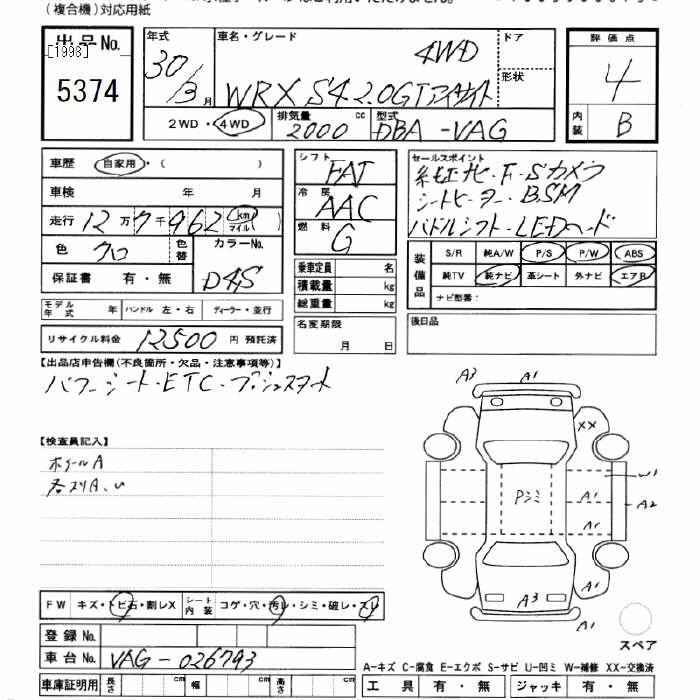 （複合機）対応用紙
出品No.
[1998]
5374
年式 30/3月
車名・グレード 4WD
WRX S4 2.0GTアイサイト
ドア
形状
評価点
4
内装 B
2WD・4WD
排気量 2000 cc
型式 DBA-VAG
車歴 自家用・（ ）
車検 年 月
走行 12万7千962 (km マイル)
色 クロ 色替 カラーNo. D4S
保証書 有・無
モデル年式 年 ハンドル 左・右 ディーラー・並行
リサイクル料金 12500 円 預託済
シフト FAT
冷房 AAC
燃料 G
乗車定員 名
積載量 kg
総重量 kg
名変期限
月 日
セールスポイント
純正ナビ・F・Sカメラ
シートヒーター・BSM
パドルシフト・LEDヘッド
装備品 S/R 純A/W P/S P/W ABS
純TV 純ナビ 革シート 外ナビ エアB
ナビ型番：
後日品
【出品店申告欄(不良箇所・欠品・注意事項等)】
パワーシート・ETC・プッシュスタート
【検査員記入】
ホイールA
各スリA、U
A3 A1
XX
W1
Pシミ A1 A2
A1
A3 A1
A1
スペア
FW キズ・トビ石・割レX シート内装 コゲ・穴・汚レ・シミ・破レ・スレ
登録No.
車台No. VAG-026793
A-キズ C-腐食 E-エクボ S-サビ U-凹ミ W-補修 XX-交換済
車庫証明用 長さ cm 幅 cm 高さ cm
工具 有・無 ジャッキ 有・無